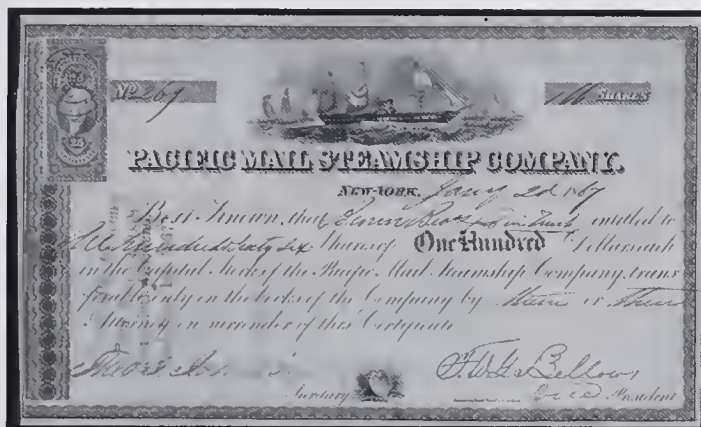 No 267 SHARES
PACIFIC MAIL STEAMSHIP COMPANY.
NEW-YORK, Jany 2d 1867
Be it Known, that in Trust entitled to
Hundred Sixty Six Shares of One Hundred Dollars each
in the Capital Stock of the Pacific Mail Steamship Company, trans
ferable only on the books of the Company by them or Their
Attorney on surrender of this Certificate
F. W. G. Bellows
Secretary Vice President
25